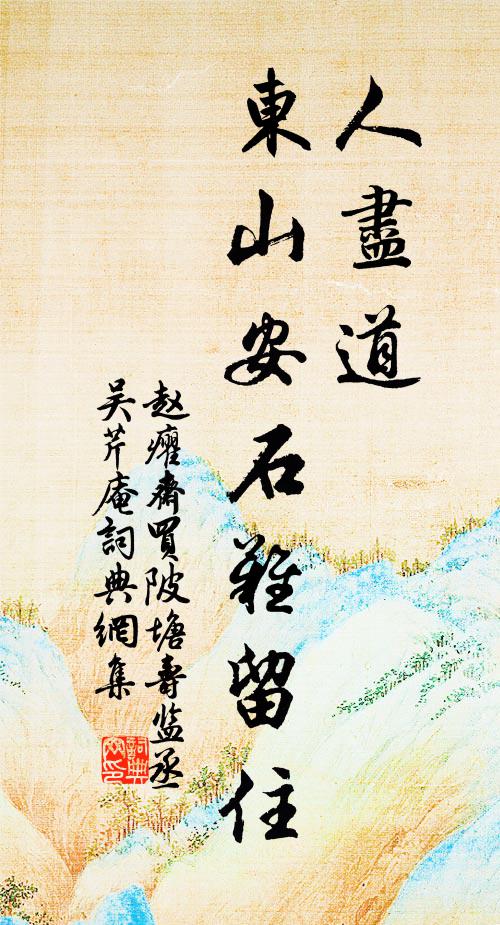 人盡道
東山安石難留住
赵癯斋買陂塘壽监丞
吴芹庵詞典網集
詞典